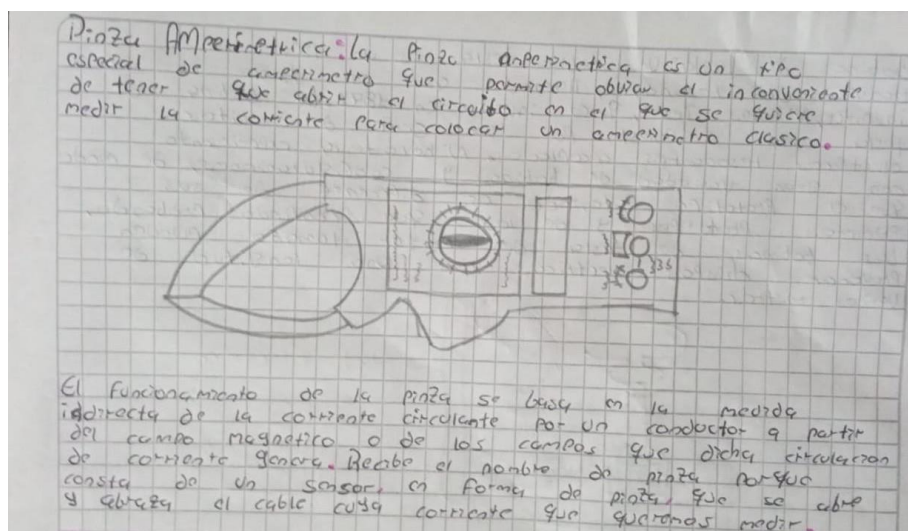 Pinza Amperimetrica: La Pinza amperimetrica es un tipo
especial de amperimetro que permite obviar el inconveniente
de tener que abrir el circuito en el que se quiere
medir la corriente para colocar un amperimetro clasico.
El funcionamiento de la pinza se basa en la medida
indirecta de la corriente circulante por un conductor a partir
del campo magnetico o de los campos que dicha circulacion
de corriente genera. Recibe el nombre de pinza porque
consta de un sensor, en forma de pinza, que se abre
y abraza el cable cuya corriente que queremos medir.